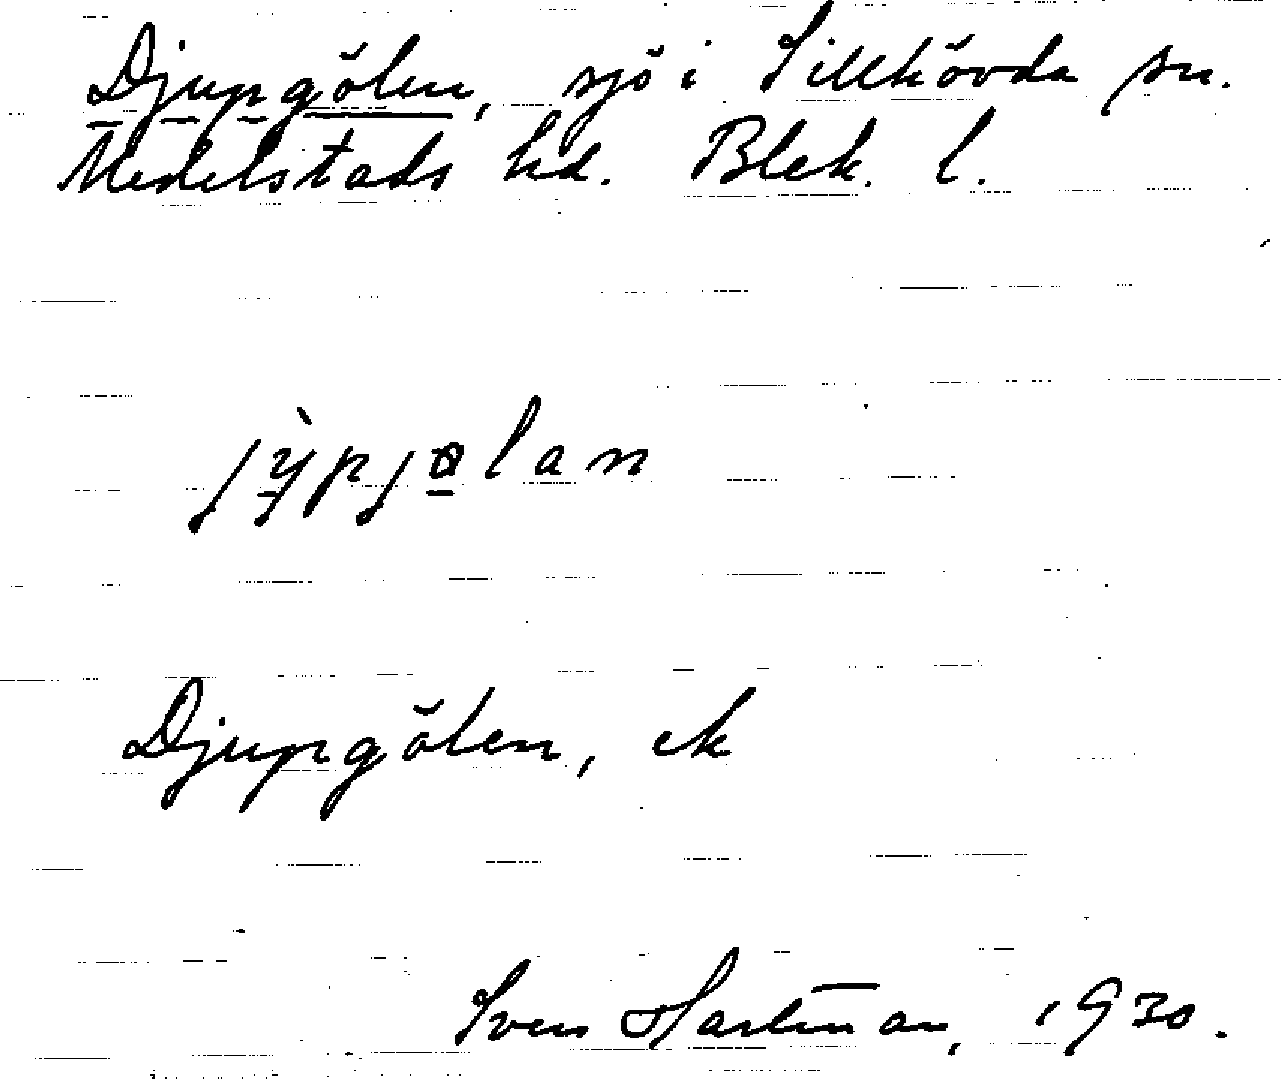 Djupgölen, sjö i Sillhövda sn.
Medelstads hd. Blek. l.
jỳpjølan
Djupgölen, ek
Sven Hartman, 1930.